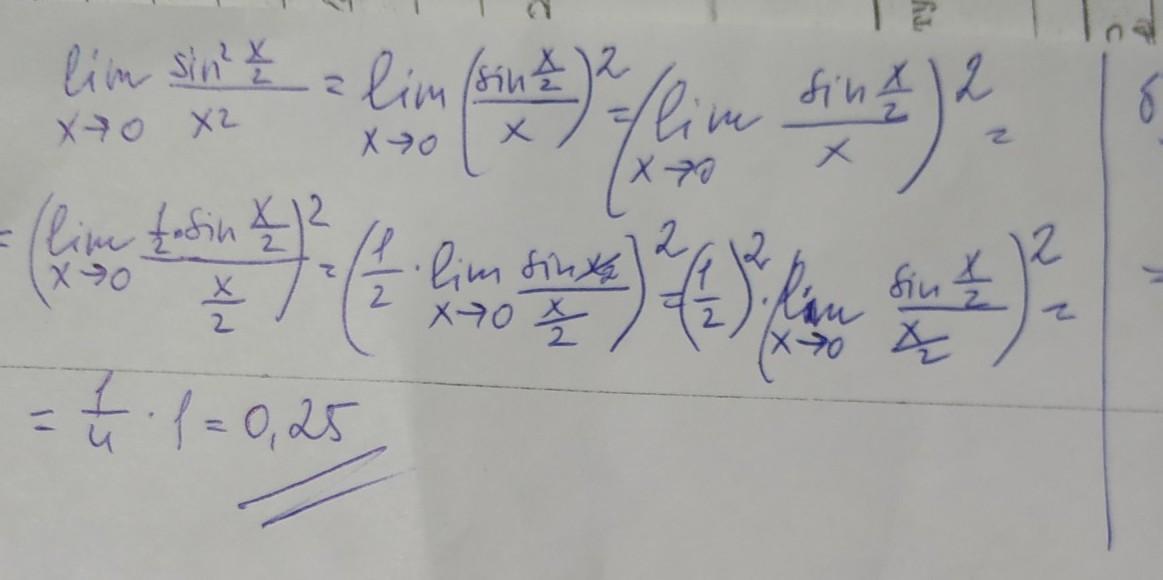 lim x→0 sin² x/2 / x² = lim x→0 (sin x/2 / x)² = (lim x→0 sin x/2 / x)² =
= (lim x→0 1/2 · sin x/2 / x/2)² = (1/2 · lim x→0 sin x/2 / x/2)² = (1/2)² · (lim x→0 sin x/2 / x/2)² =
= 1/4 · 1 = 0,25